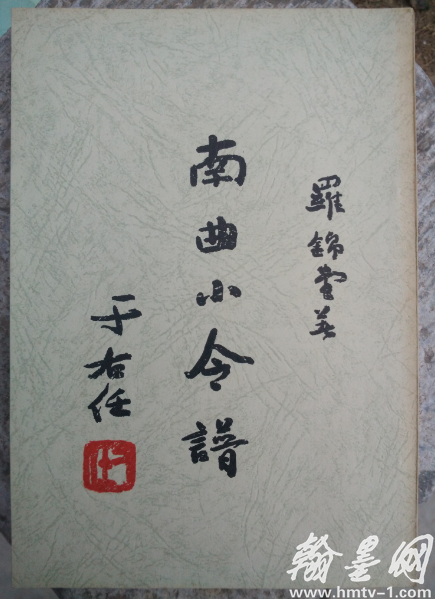 羅錦堂著
南曲小令譜
于右任
翰墨网
www.hmtv-1.com